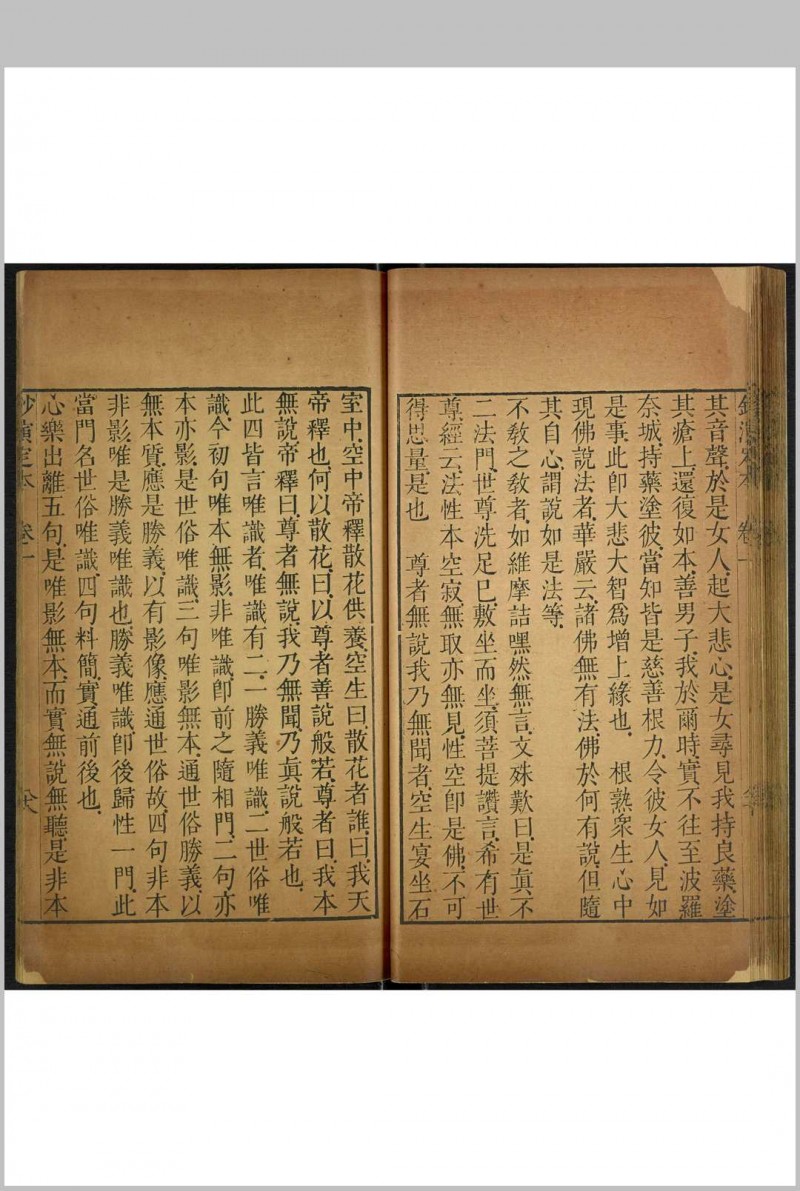 其音聲於是女人起大悲心是女尋見我持良藥塗
其瘡上還復如本善男子我於爾時實不往至波羅
奈城持藥塗彼當知皆是慈善根力令彼女人見如
是事此卽大悲大智爲增上緣也　根熟衆生心中
現佛說法者華嚴云諸佛無有法佛於何有說但隨
其自心謂說如是法等
不敎之敎者如維摩詰嘿然無言文殊歎曰是眞不
二法門世尊洗足巳敷坐而坐須菩提讚言希有世
尊經云法性本空寂無取亦無見性空卽是佛不可
得思量是也　尊者無說我乃無聞者空生宴坐石
室中空中帝釋散花供養空生曰散花者誰曰我天
帝釋也何以散花曰以尊者善說般若尊者曰我本
無說帝釋曰尊者無說我乃無聞乃眞說般若也
此四皆言唯識者唯識有二一勝義唯識二世俗唯
識今初句唯本無影非唯識卽前之隨相門二句亦
本亦影是世俗唯識三句唯影無本通世俗勝義以
無本質應是勝義以有影像應通世俗故四句非本
非影唯是勝義唯識也勝義唯識卽後歸性一門此
當門名世俗唯識四句料簡實通前後也
心樂出離五句是唯影無本而實無說無聽是非本
鈔演定本　卷一　六